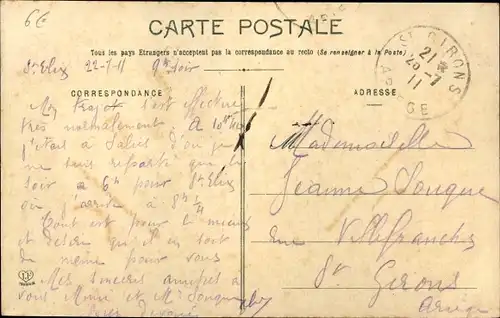 6€
CARTE POSTALE
Tous les pays Etrangers n'acceptent pas la correspondance au recto (Se renseigner à la Poste)
St Elix 22-7-11 9h soir
CORRESPONDANCE
ADRESSE
ST GIRONS
21
23-7
11
ARIEGE
Mon trajet s'est effectué
très normalement. A 10h
j'étais à Salies d'où je
ne suis reparti que le
soir à 6h pour St Elix
où j'arrive à 8h 1/4
Tout est pour le mieux
et désire qu'il en soit
de même pour vous
Mes sincères amitiés à
vous, Mme et Mr
Mademoiselle
Jeanne Souque
rue Villefranche
St Girons
Ariège